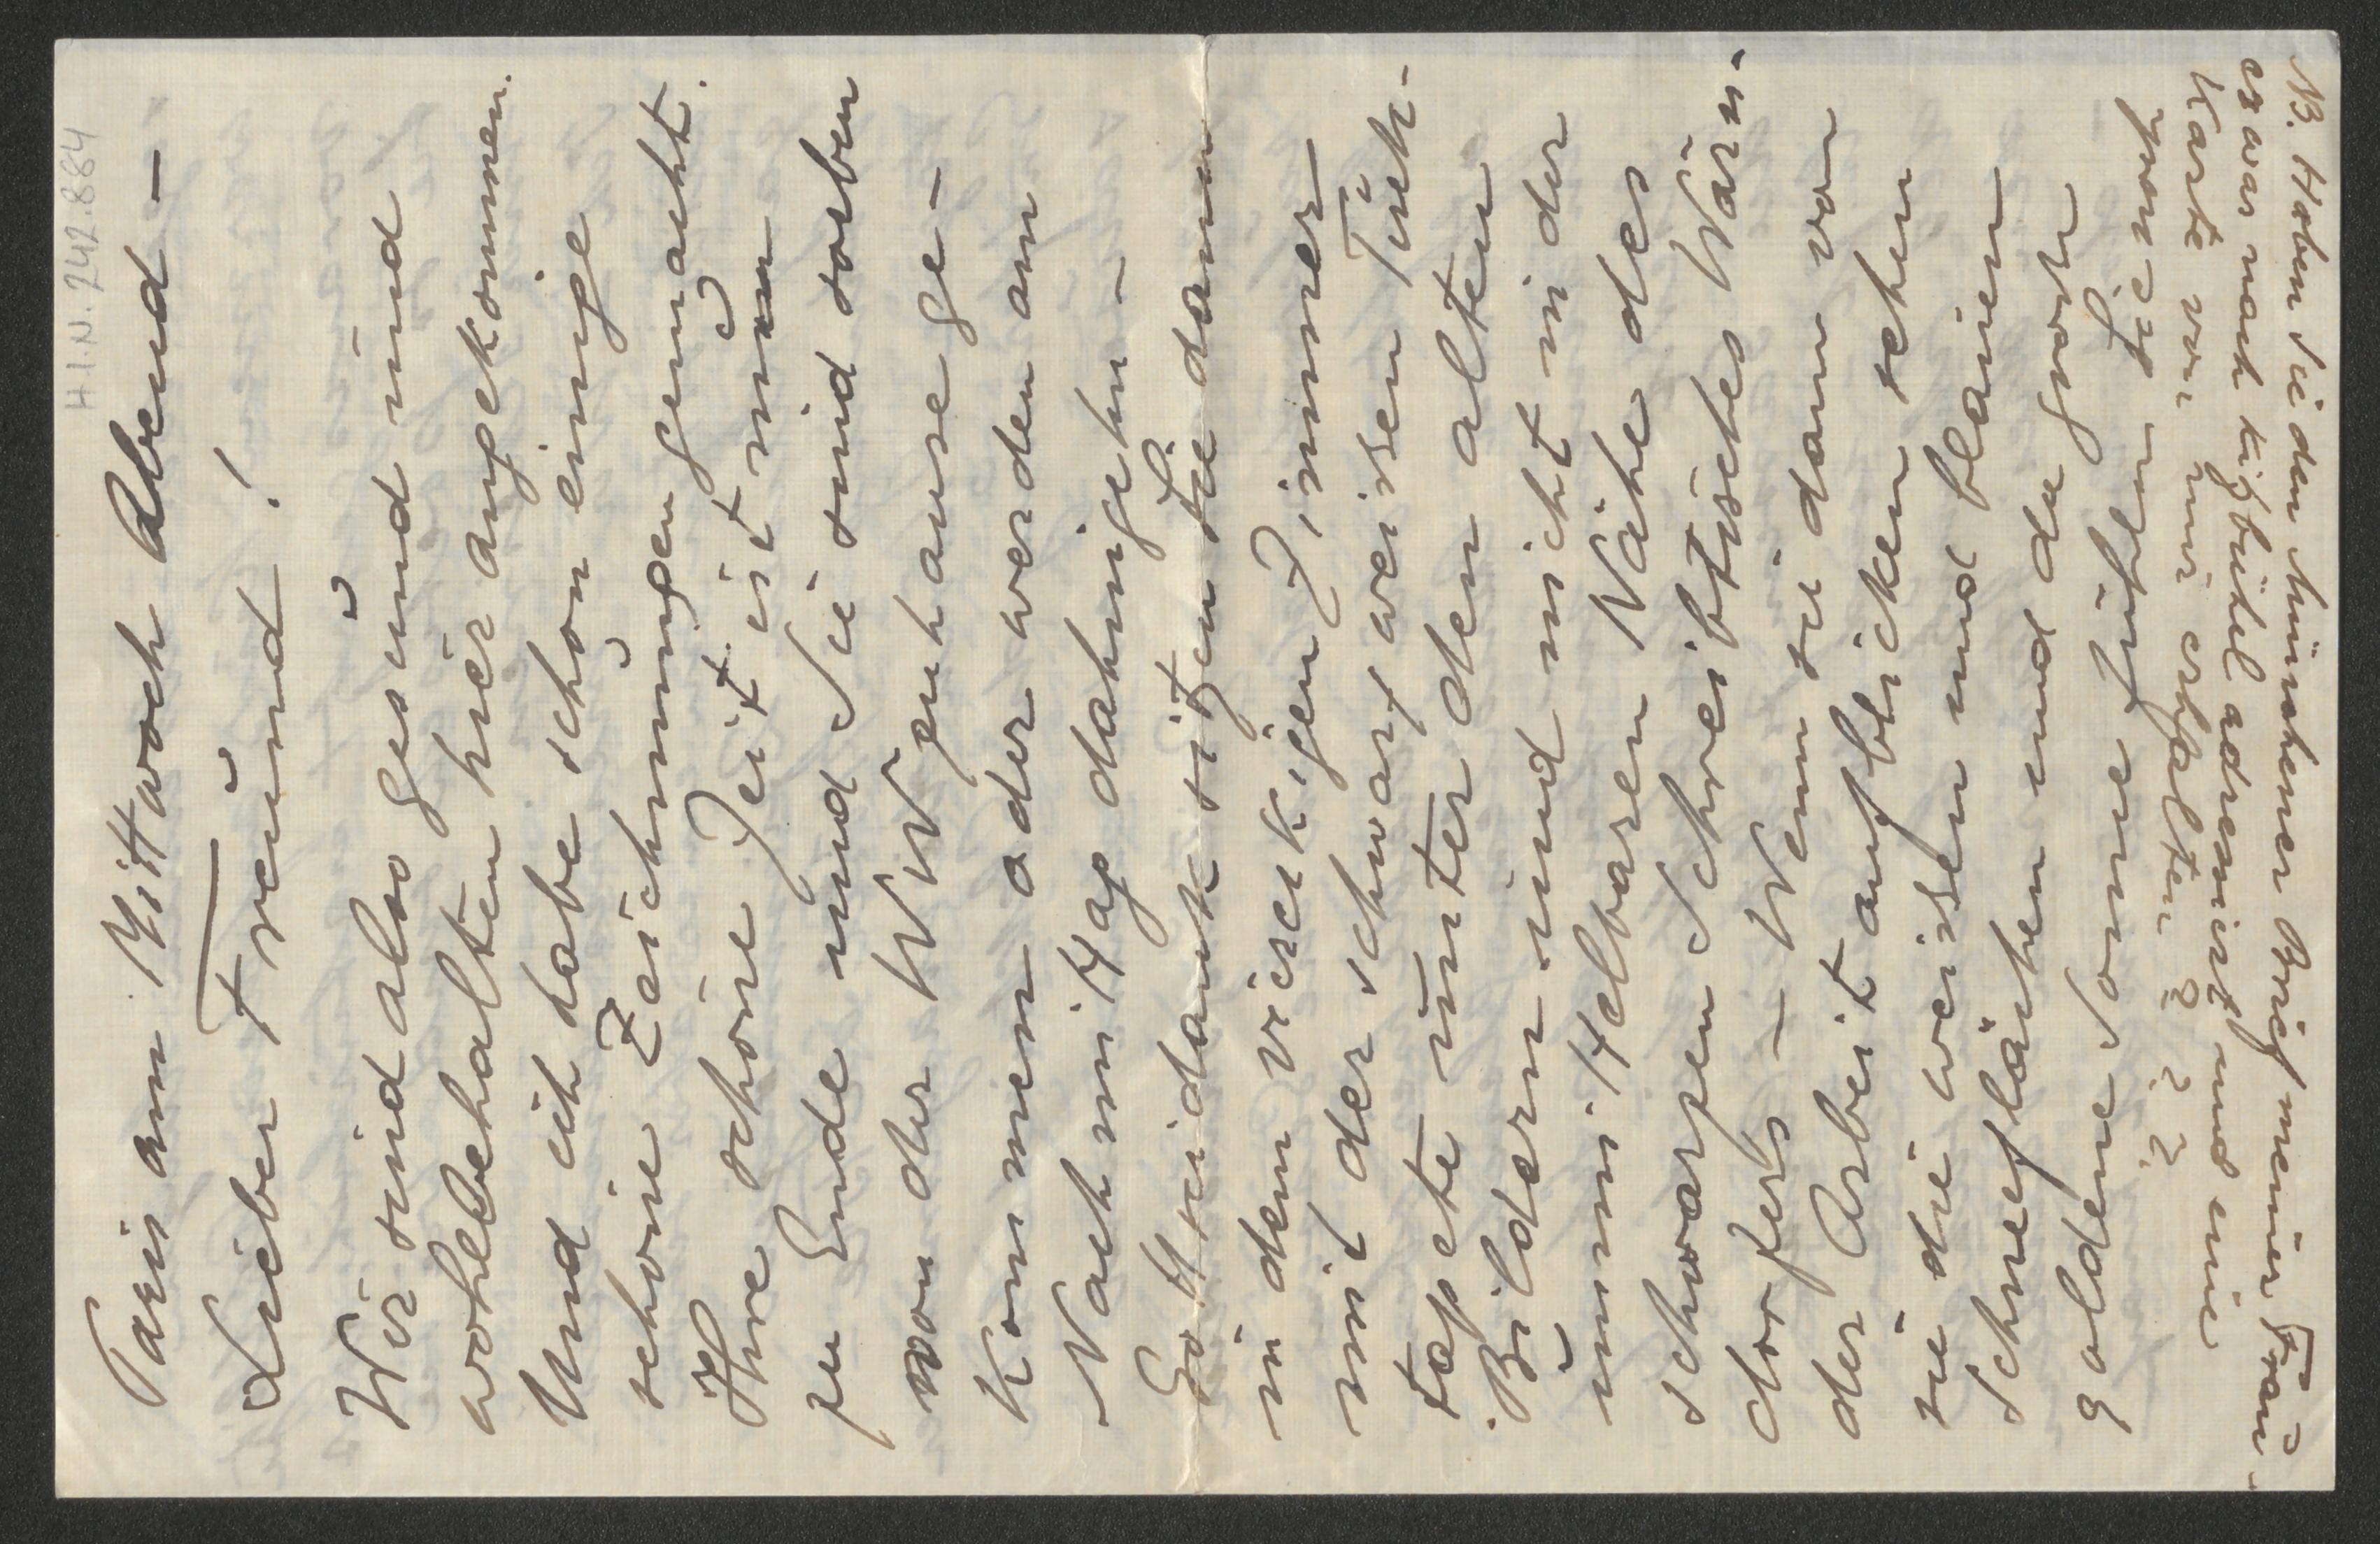 H.I.N. 242.884
Paris am Mittwoch Abend –
Lieber Freund!
Wir sind also gesund und
wohlbehalten hier angekommen.
Und ich habe schon einige
schöne Zeichnungen gemacht.
Ihre schöne Zeit ist nun
zu Ende und Sie sind soeben
von der WW zuhause ge-
kommen oder werden am
Nachmittag dahingehn –
Gottseidank sitzen Sie dann
in dem viereckigen Zimmer
mit der schwarzweissen Tuch-
tapete unter den alten
Bildern und nicht in der
unmittelbaren Nähe des
schwarzen Schreibtisches Wärn-
dorfers – Wenn sie dann von
der Arbeit aufblicken sehen
sie die weissen und blauen
Schneeflächen und da grosse
goldene Sonne fühlen sie noch
NB. Haben Sie den Münchener Brief meiner Frau
es war nach Kitzbühel adressiert und eine
Karte von mir erhalten? ? ?